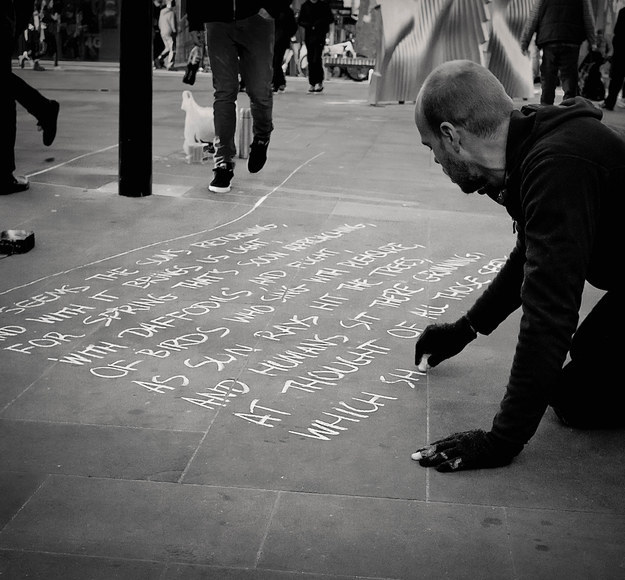 SEEKS THE SUN'S RETURNING,
AND WITH IT BRINGS US LIGHT,
FOR SPRING THAT'S SOON APPROACHING,
WITH DAFFODILS AND FLIGHT
OF BIRDS WHO SING WITH REMOVE,
AS SUN RAYS HIT THE TREES,
AND HUMANS SIT THERE GRINNING,
AT THOUGHT OF ALL THOSE
WHICH SH